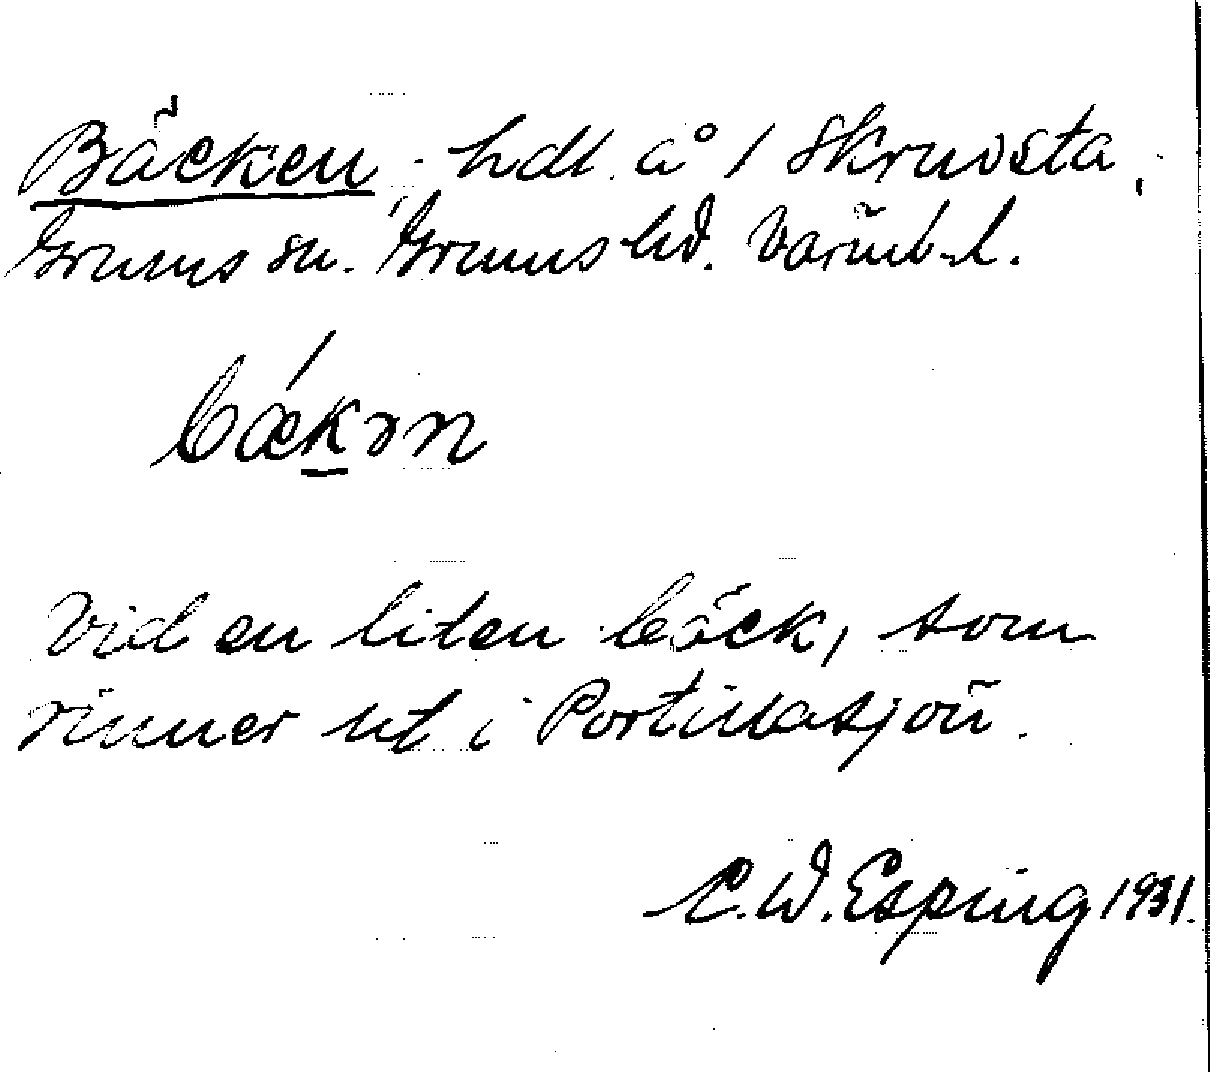 Bäcken, hdl. å 1 Skruvsta,
Grums sn. Grums hd. Värml. l.
bækən
Vid en liten bäck, som
rinner ut i Portillasjön.
C.W. Esping 1931.